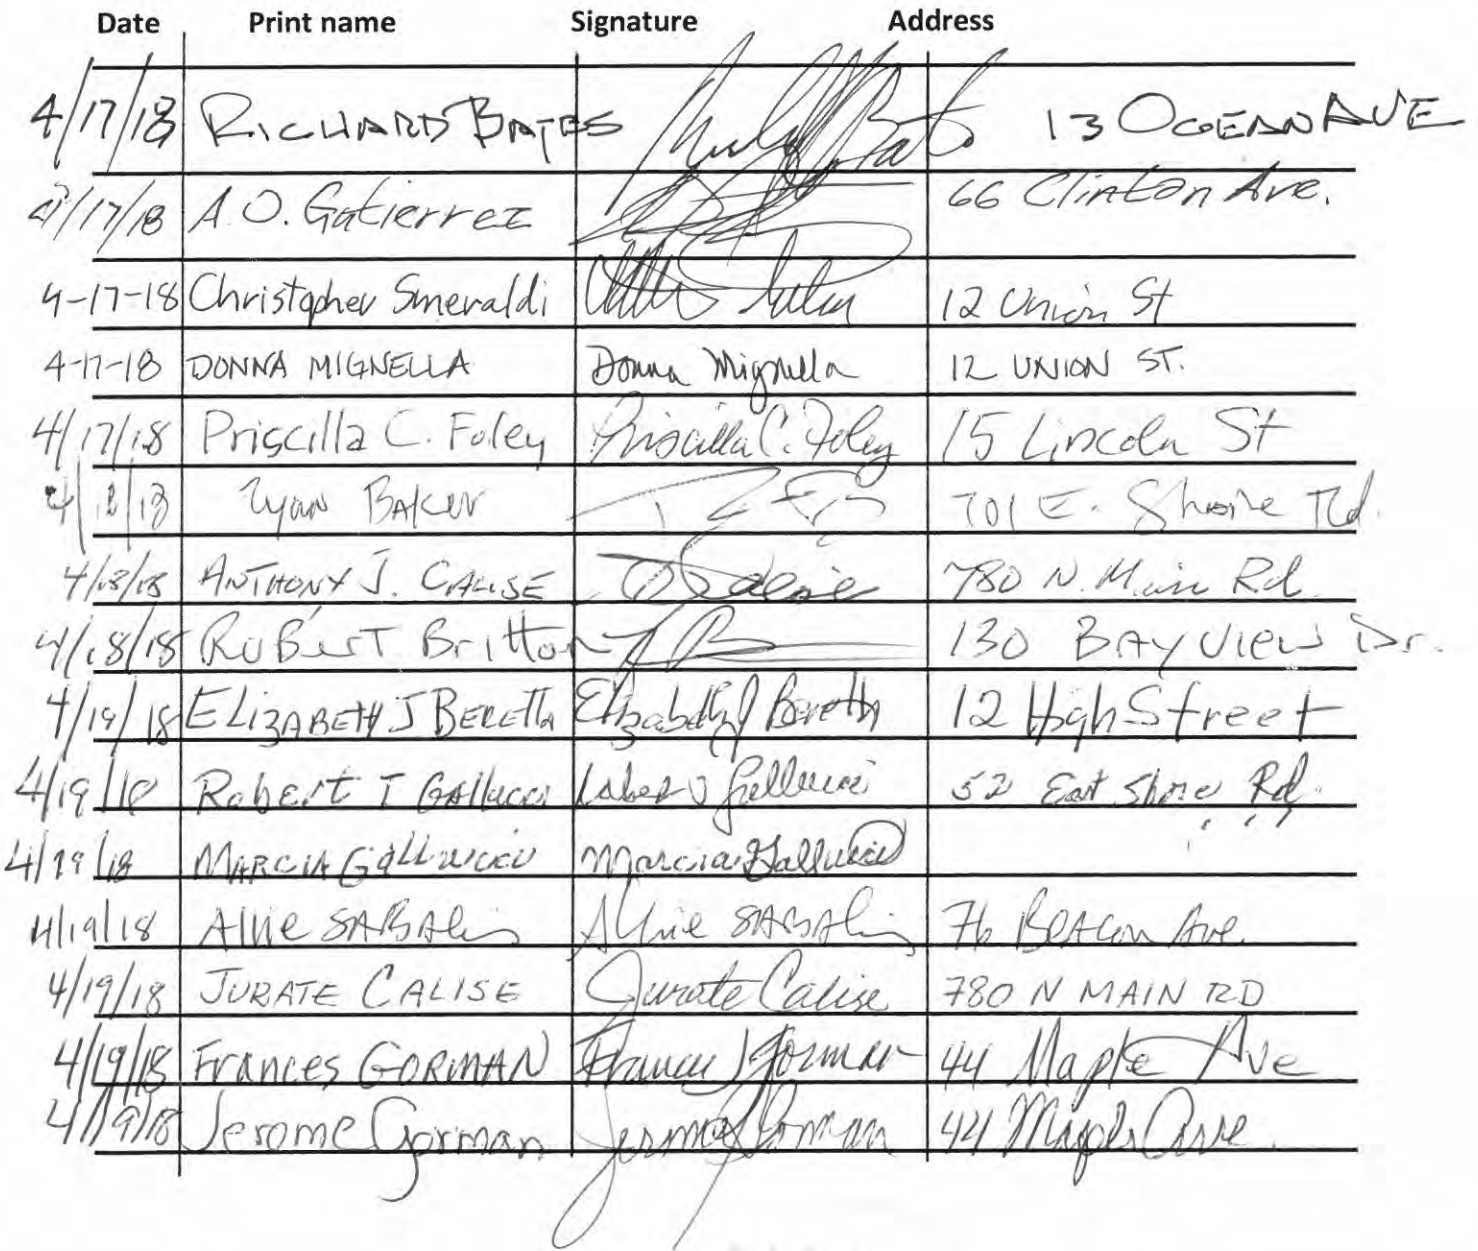 Date Print name Signature Address
4/17/18 RICHARD BATES 13 OCEAN AVE
4/17/18 A.O. Gutierrez 66 Clinton Ave.
4-17-18 Christopher Smeraldi 12 Union St
4-17-18 DONNA MIGNELLA Donna Mignella 12 UNION ST.
4/17/18 Priscilla C. Foley Priscilla C. Foley 15 Lincoln St
4/18/18 Ryan Baker 701 E. Shore Rd.
4/18/18 ANTHONY J. CALISE 780 N. Main Rd
4/18/18 RoBerT Britton 130 BAyView Dr.
4/19/18 ELIZABETH J BERETTA Elizabeth J Beretta 12 High Street
4/19/18 Robert T GAllucci 52 East Shore Rd.
4/19/18 MARCIA GALLUCCI Marcia Gallucci " "
4/19/18 Allie 76 Beacon Ave.
4/19/18 JURATE CALISE Jurate Calise 780 N MAIN RD
4/19/18 Frances GORMAN Frances J Gorman 44 Maple Ave
4/19/18 Jerome Gorman Jerome Gorman 44 Maple Ave.